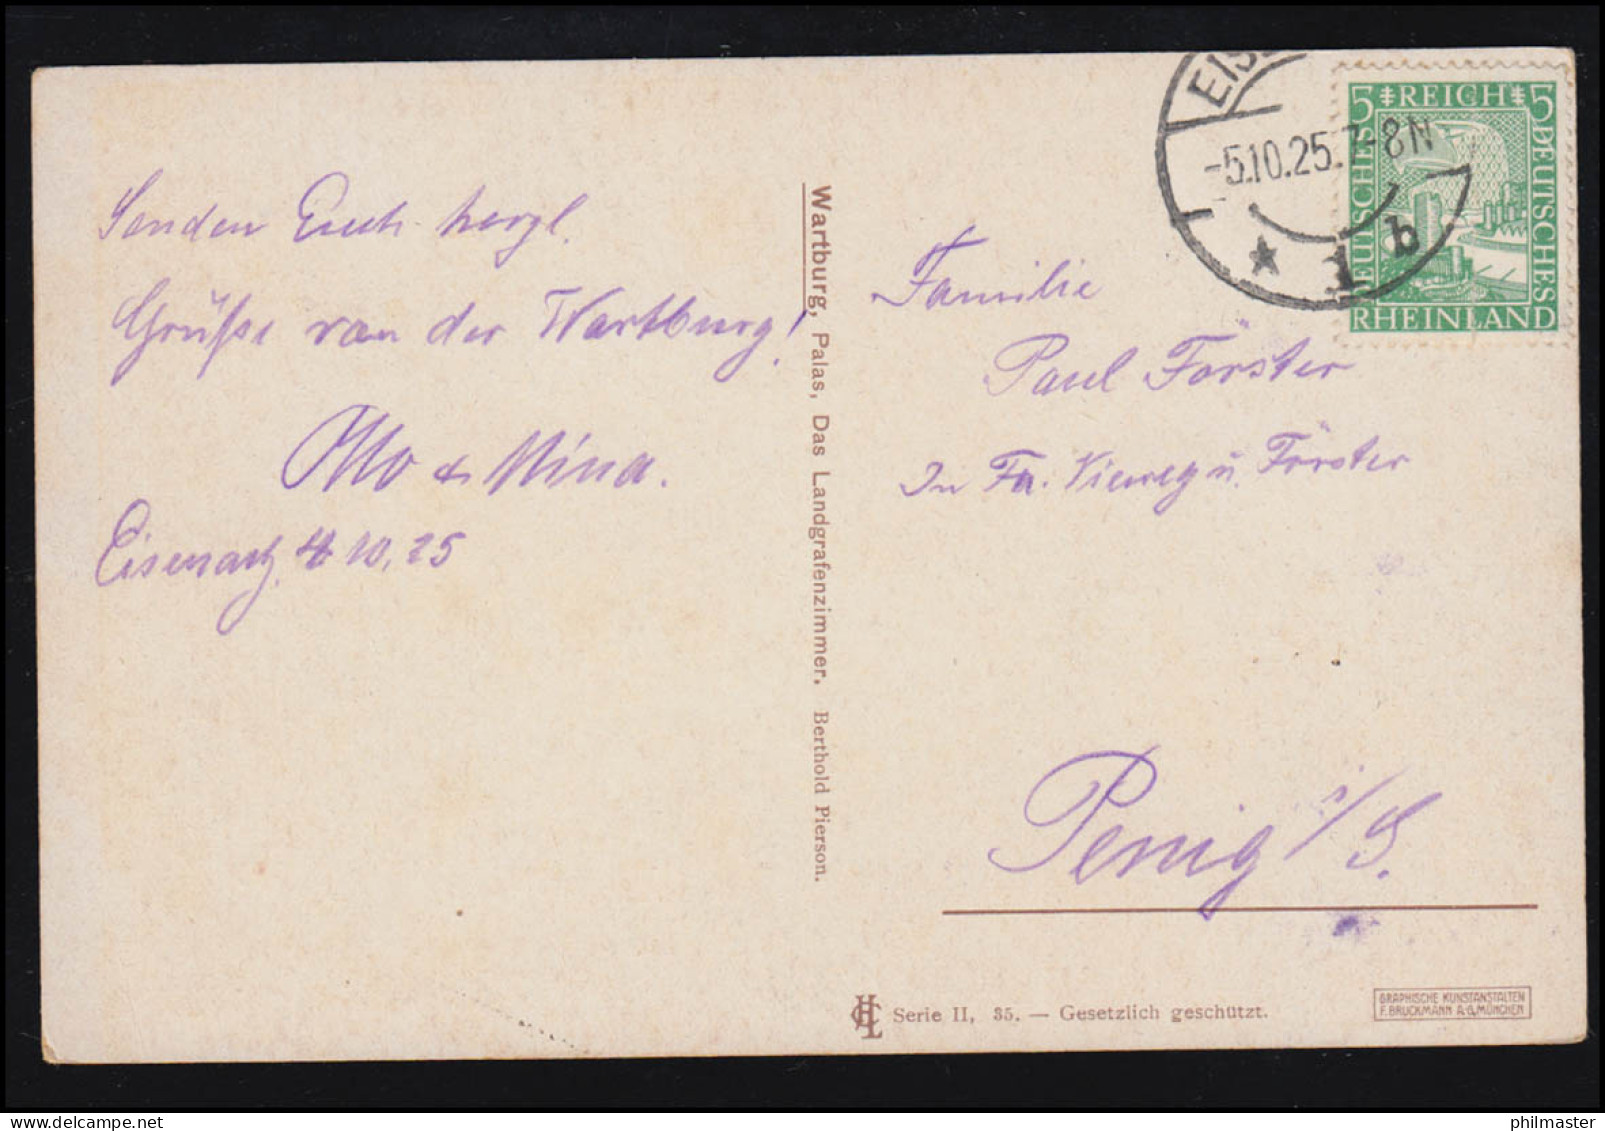 Senden Euch herzl.
Grüße von der Wartburg!
Otto & Mina.
Eisenach, 4 10. 25
Wartburg, Palas, Das Landgrafenzimmer. Berthold Pierson.
EIS
-5.10.25.7-8N
★ 1 b
5 REICH 5
DEUTSCHES
DEUTSCHES
RHEINLAND
Familie
Paul Förster
In Fa. Vieweg u. Förster
Penig i/S.
Serie II, 35. — Gesetzlich geschützt.
GRAPHISCHE KUNSTANSTALTEN
F. BRUCKMANN A.G. MÜNCHEN
philmaster